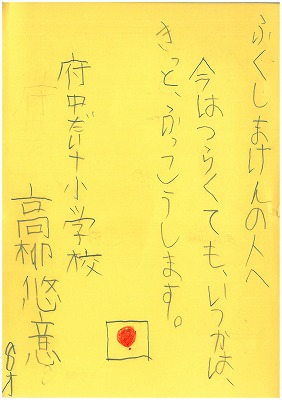 ふくしまけんの人へ
今はつらくても、いつかは、
きっと、ふっこうします。
府中だい十小学校
高柳悠意
8才